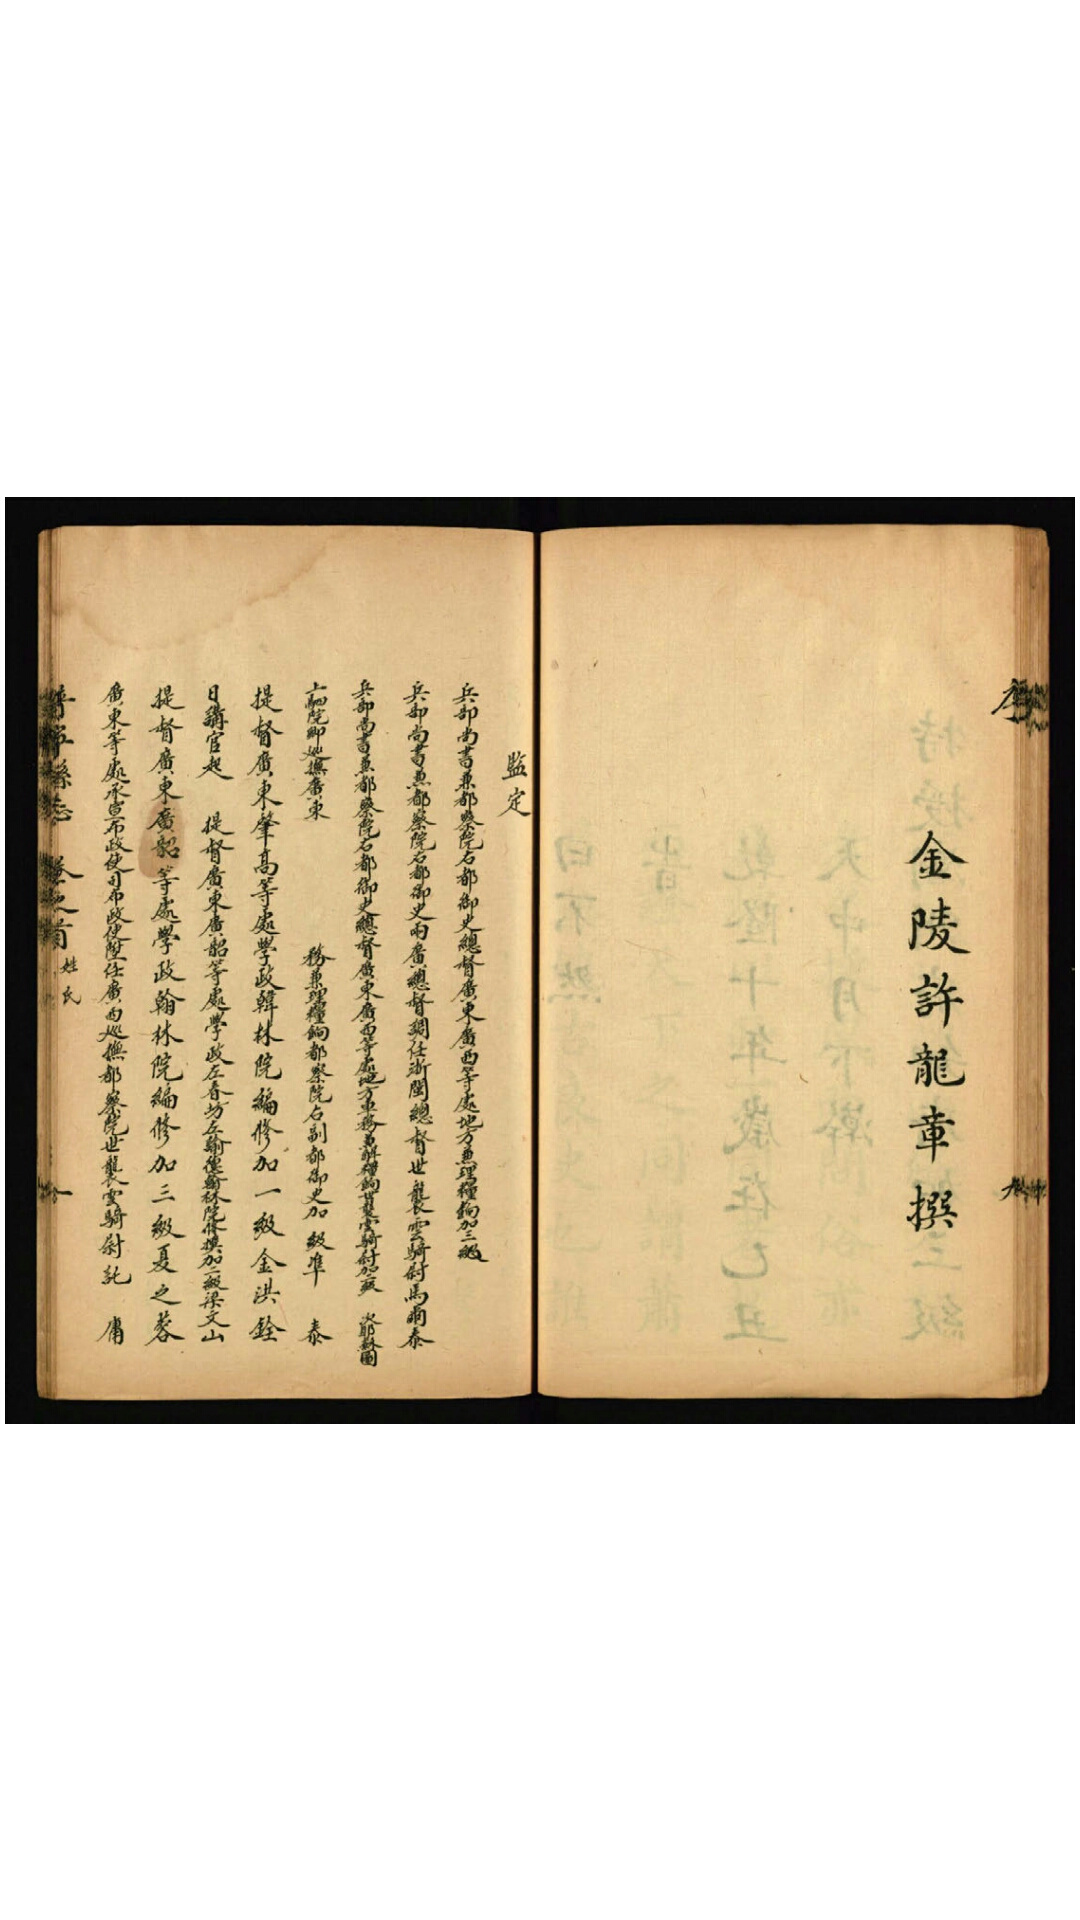 金陵許龍章撰
監定
兵部尚書兼都察院右都御史總督廣東廣西等處地方兼理糧餉加三級
兵部尚書兼都察院右都御史兩廣總督調任浙閩總督世襲雲騎尉馬爾泰
兵部尚書兼都察院右都御史總督廣東廣西等處地方軍務兼理糧餉世襲雲騎尉加級
上駟院卿巡撫廣東 務兼理糧餉都察院右副都御史加 級準 泰
提督廣東肇高等處學政翰林院編修加一級金洪銓
日講官起 提督廣東廣韶等處學政左春坊左諭德翰林院修撰加二級梁文山
提督廣東廣韶等處學政翰林院編修加三級夏之蓉
廣東等處承宣布政使司布政使陞任廣西巡撫都察院世襲雲騎尉託 庸
縣志 卷之首 姓氏